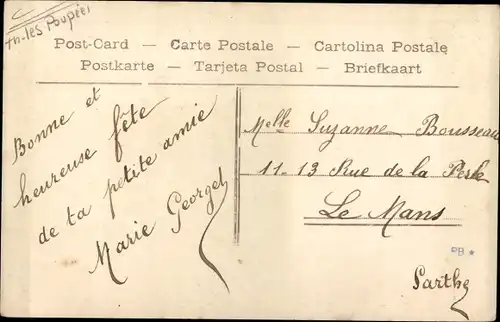 th. les Poupées
Post-Card — Carte Postale — Cartolina Postale
Postkarte — Tarjeta Postal — Briefkaart
Bonne et
heureuse fête
de ta petite amie
Marie Georget
Melle Suzanne Bousseau
11-13 Rue de la
Le Mans
PB
Sarthe